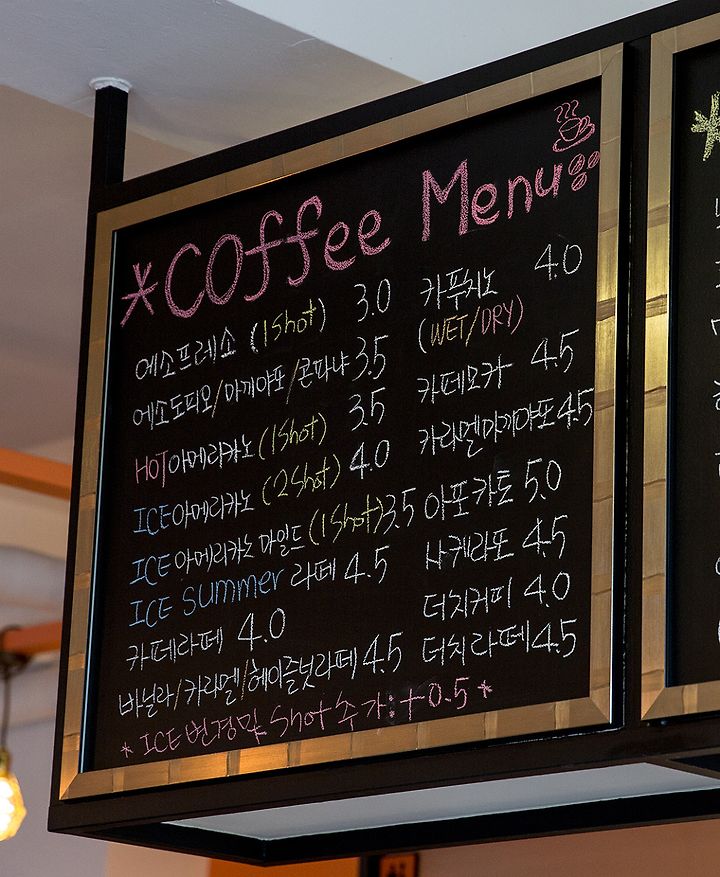 *Coffee Menu
에소프레소 (1Shot) 3.0
에소도피오/마끼야또/콘파냐 3.5
HOT아메리카노(1Shot) 3.5
ICE아메리카노 (2Shot) 4.0
ICE아메리카노 마일드(1Shot)3.5
ICE Summer 라떼 4.5
카페라떼 4.0
바닐라/카라멜/헤이즐넛라떼 4.5
카푸치노 4.0
(WET/DRY)
카페모카 4.5
카라멜마끼야또4.5
아포카토 5.0
사케라또 4.5
더치커피 4.0
더치라떼4.5
* ICE변경및 Shot추가:+0.5 *